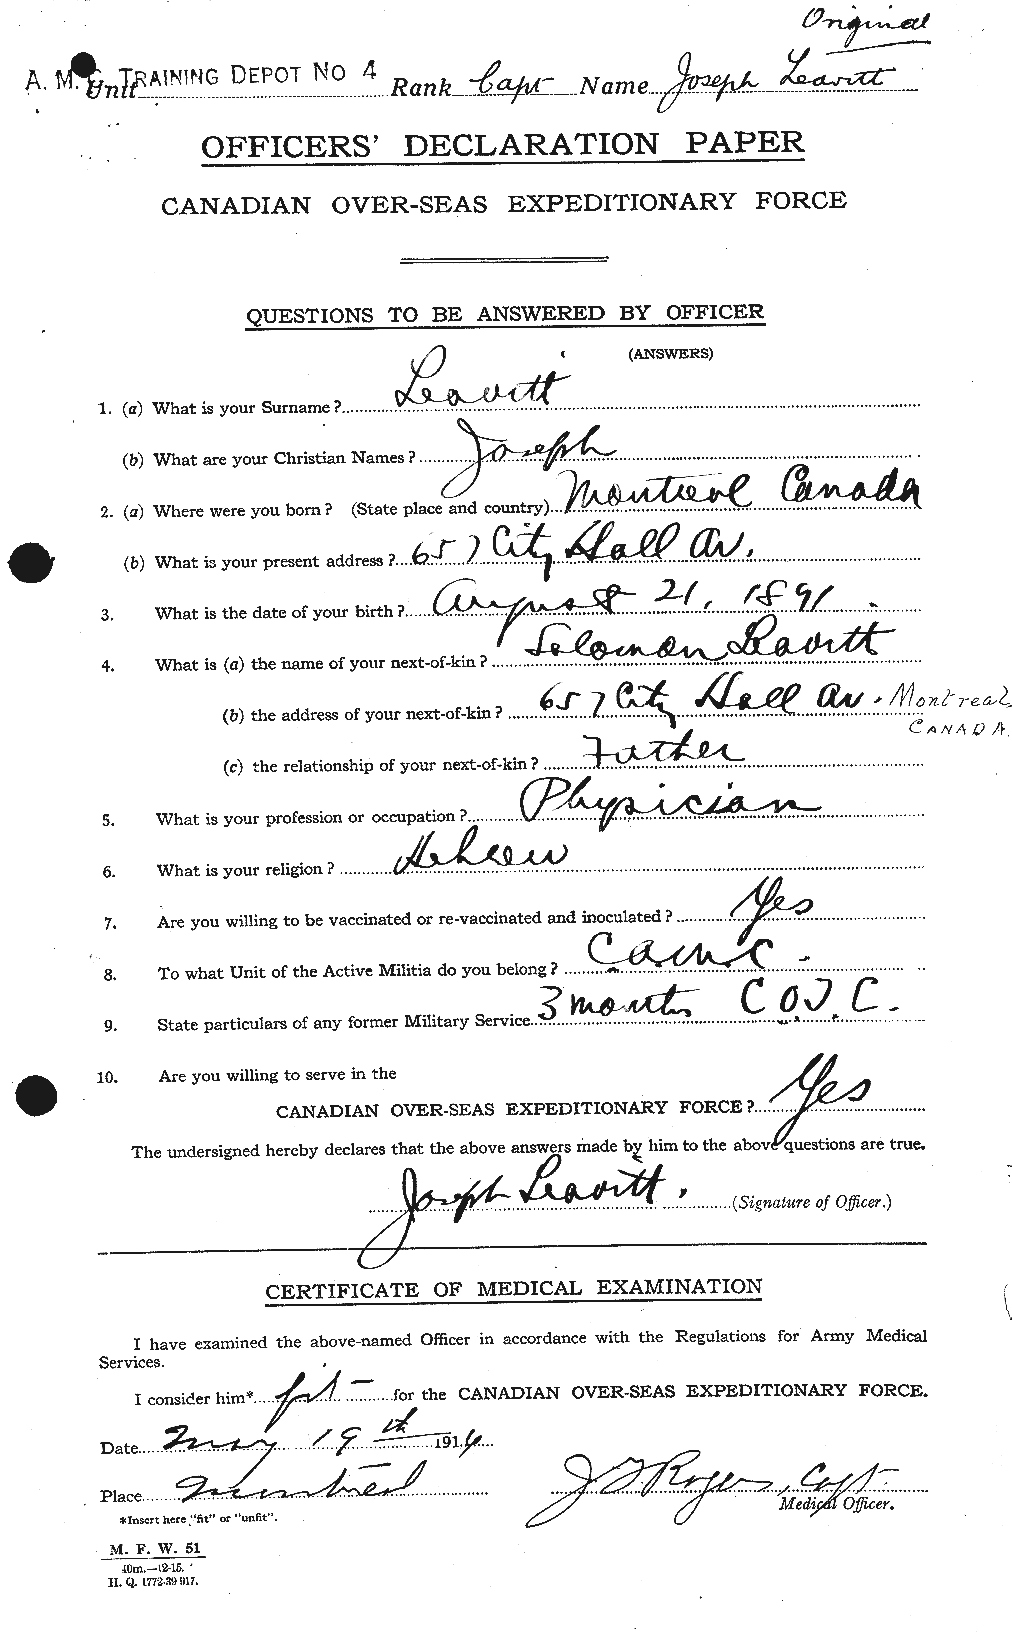 Original
A. M. C. TRAINING DEPOT NO 4
Unit Rank Capt Name Joseph Leavitt
OFFICERS' DECLARATION PAPER
CANADIAN OVER-SEAS EXPEDITIONARY FORCE
QUESTIONS TO BE ANSWERED BY OFFICER
(ANSWERS)
1. (a) What is your Surname? Leavitt
(b) What are your Christian Names? Joseph
2. (a) Where were you born? (State place and country) Montreal Canada
(b) What is your present address? 657 City Hall Av.
3. What is the date of your birth? August 21, 1891.
4. What is (a) the name of your next-of-kin? Solomon Leavitt
(b) the address of your next-of-kin? 657 City Hall Av. Montreal
CANADA.
(c) the relationship of your next-of-kin? Father
5. What is your profession or occupation? Physician
6. What is your religion? Hebrew
7. Are you willing to be vaccinated or re-vaccinated and inoculated? Yes
8. To what Unit of the Active Militia do you belong? CAMC.
9. State particulars of any former Military Service. 3 months C O T. C.
10. Are you willing to serve in the
CANADIAN OVER-SEAS EXPEDITIONARY FORCE? Yes
The undersigned hereby declares that the above answers made by him to the above questions are true.
Joseph Leavitt. (Signature of Officer.)
CERTIFICATE OF MEDICAL EXAMINATION
I have examined the above-named Officer in accordance with the Regulations for Army Medical
Services.
I consider him* fit for the CANADIAN OVER-SEAS EXPEDITIONARY FORCE.
Date May 19th 1916
Place Montreal J T Rogers, Capt.
Medical Officer.
*Insert here "fit" or "unfit".
M. F. W. 51
40m.—12-15.
H. Q. 1772-39 917.